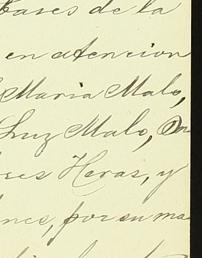 bases de la
en atencion
Maria Malo,
Luz Malo, Do
res Heras, y
por su ma